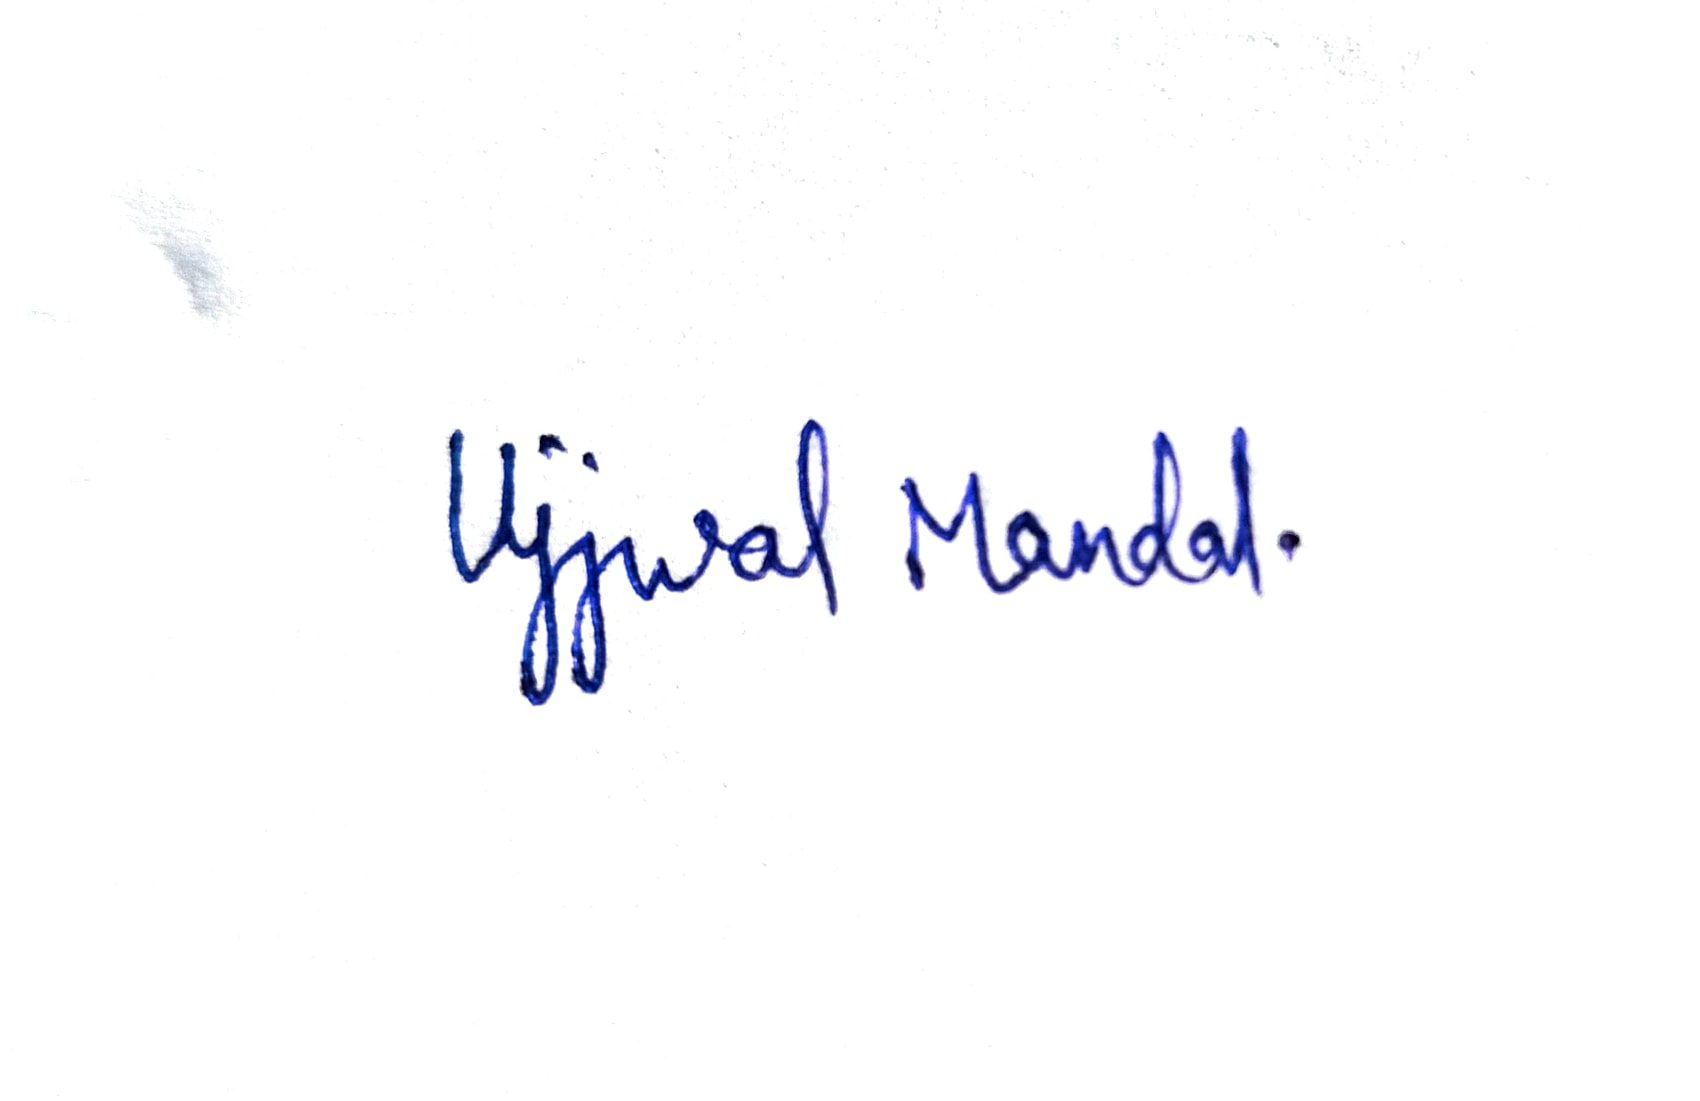 Ujjwal Mandal.